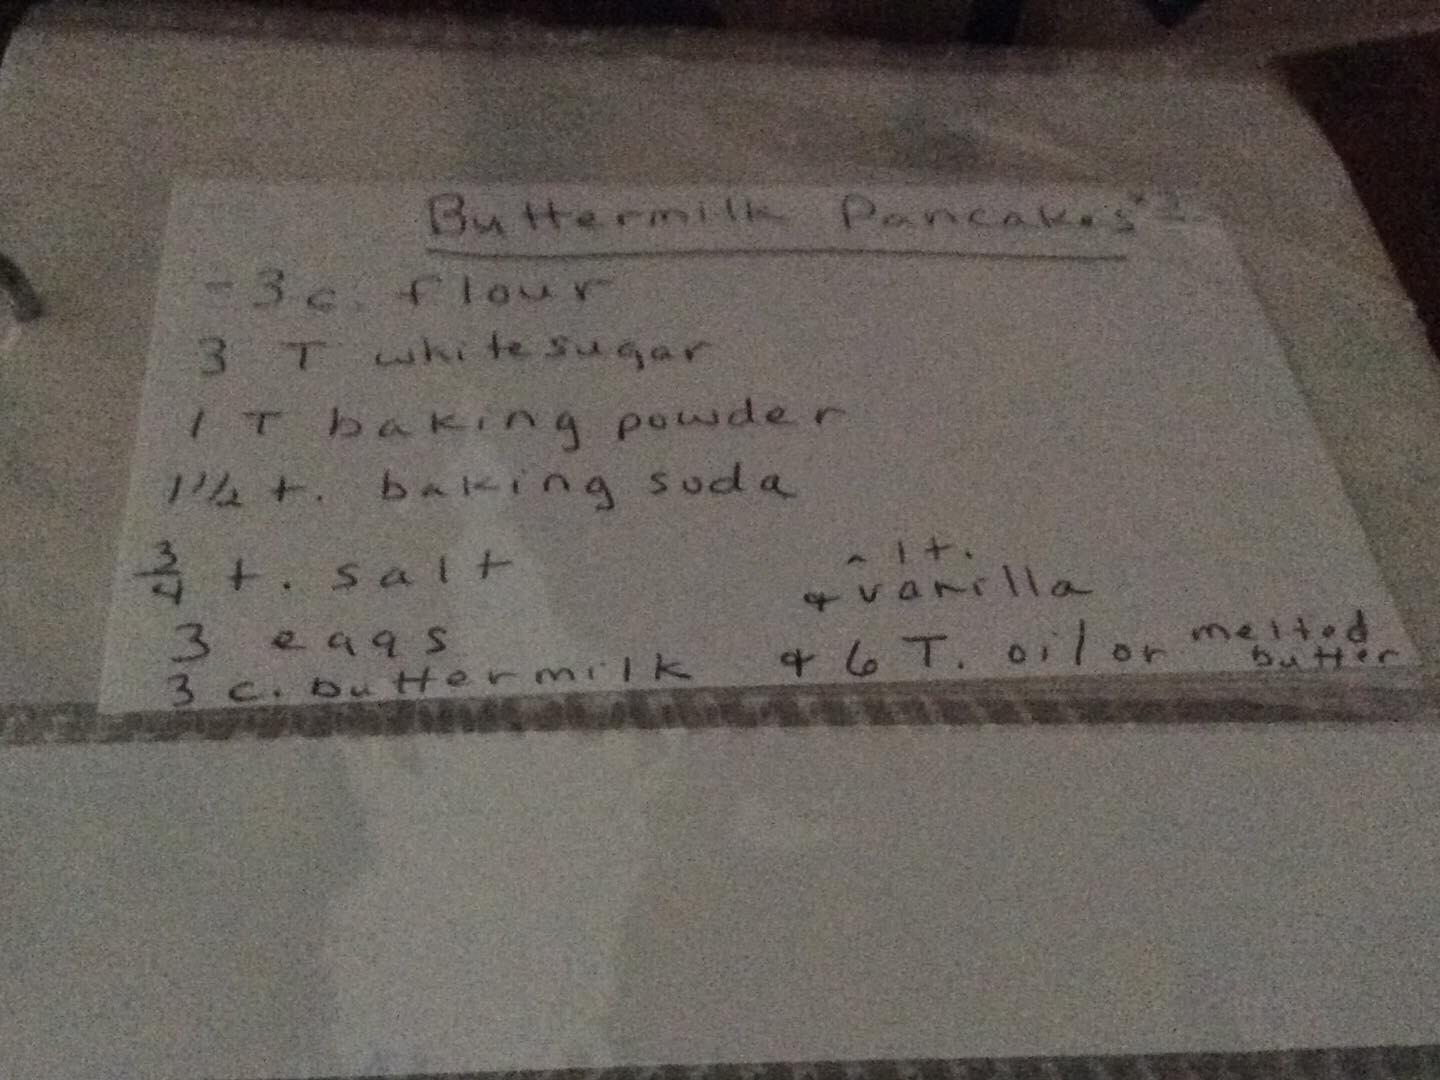 Buttermilk Pancakes
- 3 c. flour
3 T white sugar
1 T baking powder
t. baking soda
3/4 t. salt
3 eggs
3 c. buttermilk
~ 1 t.
+ vanilla
+ 6 T. oil or melted butter